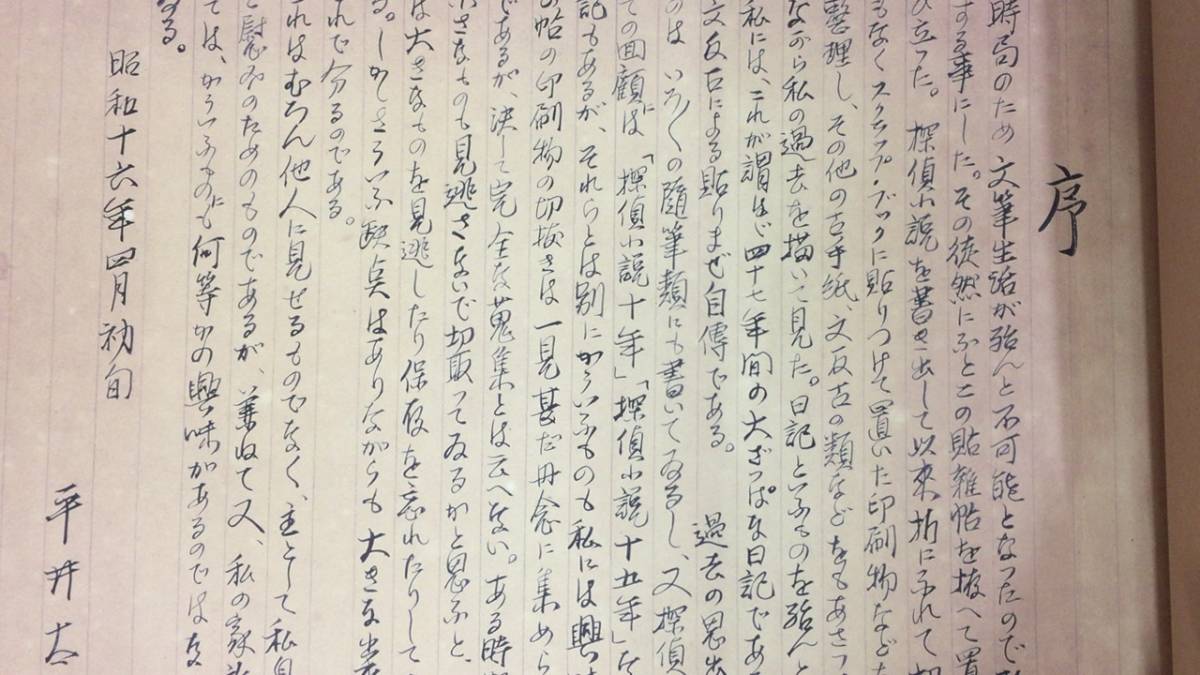 序
時局のため文筆生活が殆んど不可能となったので
する事にした。その徒然にふとこの貼雑帖を拵へて置
ひ立った。探偵小説を書き出して以来、折にふれて
もなくスクラップ・ブックに貼りつけて置いた印刷物などを
整理し、その他の古手紙、文反古の類などをもあさっ
ながら私の過去を描いて見た。日記といふものを殆んど
私には、これが謂はゞ四十七年間の大ざっぱな日記であ
文反古による貼りまぜ自傳である。 過去の思出
のは、いろ〳〵の随筆類にも書いてゐるし、又探偵
ての回顧には「探偵小説十年」「探偵小説十五年」な
記もあるが、それらとは別にかういふものも私には興味
帖の印刷物の切抜きは一見甚だ丹念に集めら
であるが、決して完全な蒐集とは云へない。ある時
さなものも見逃さないで切取ってゐるかと思ふと、
は大きなものを見逃したり保存を忘れたりして
る。しかしさういふ缺点はありながらも大きな
れで分るのである。
れはむろん他人に見せるものでなく、主として私自
慰みのためのものであるが、兼ねて又、私の家
ては、かういふものにも何等かの興味があるのではな
る。
昭和十六年四月初旬
平井太